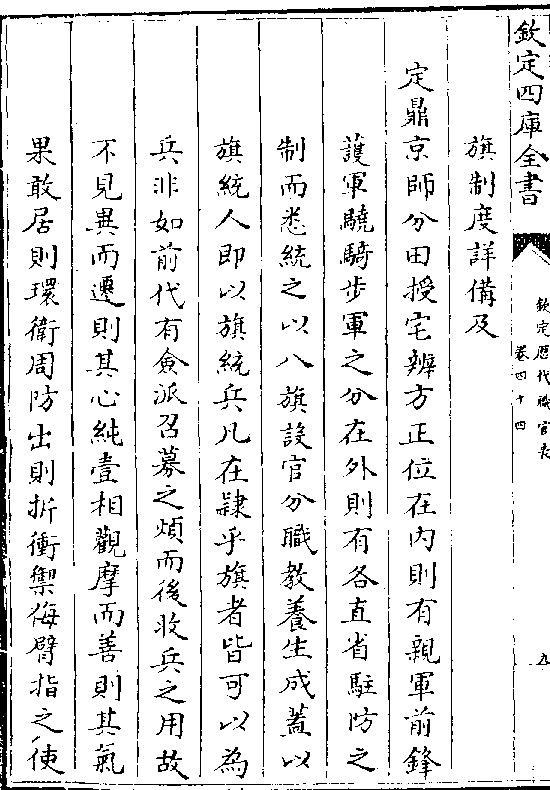 欽定四庫全書
欽定歷代職官表
卷四十四
九
旗制度詳備及
定鼎京師分田授宅辨方正位在內則有親軍前鋒
護軍驍騎步軍之分在外則有各直省駐防之
制而悉統之以八旗設官分職教養生成蓋以
旗統人即以旗統兵凡在隷乎旗者皆可以為
兵非如前代有僉派召募之煩而後收兵之用故
不見異而遷則其心純壹相觀摩而善則其氣
果敢居則環衛周防出則折衝禦侮臂指之使